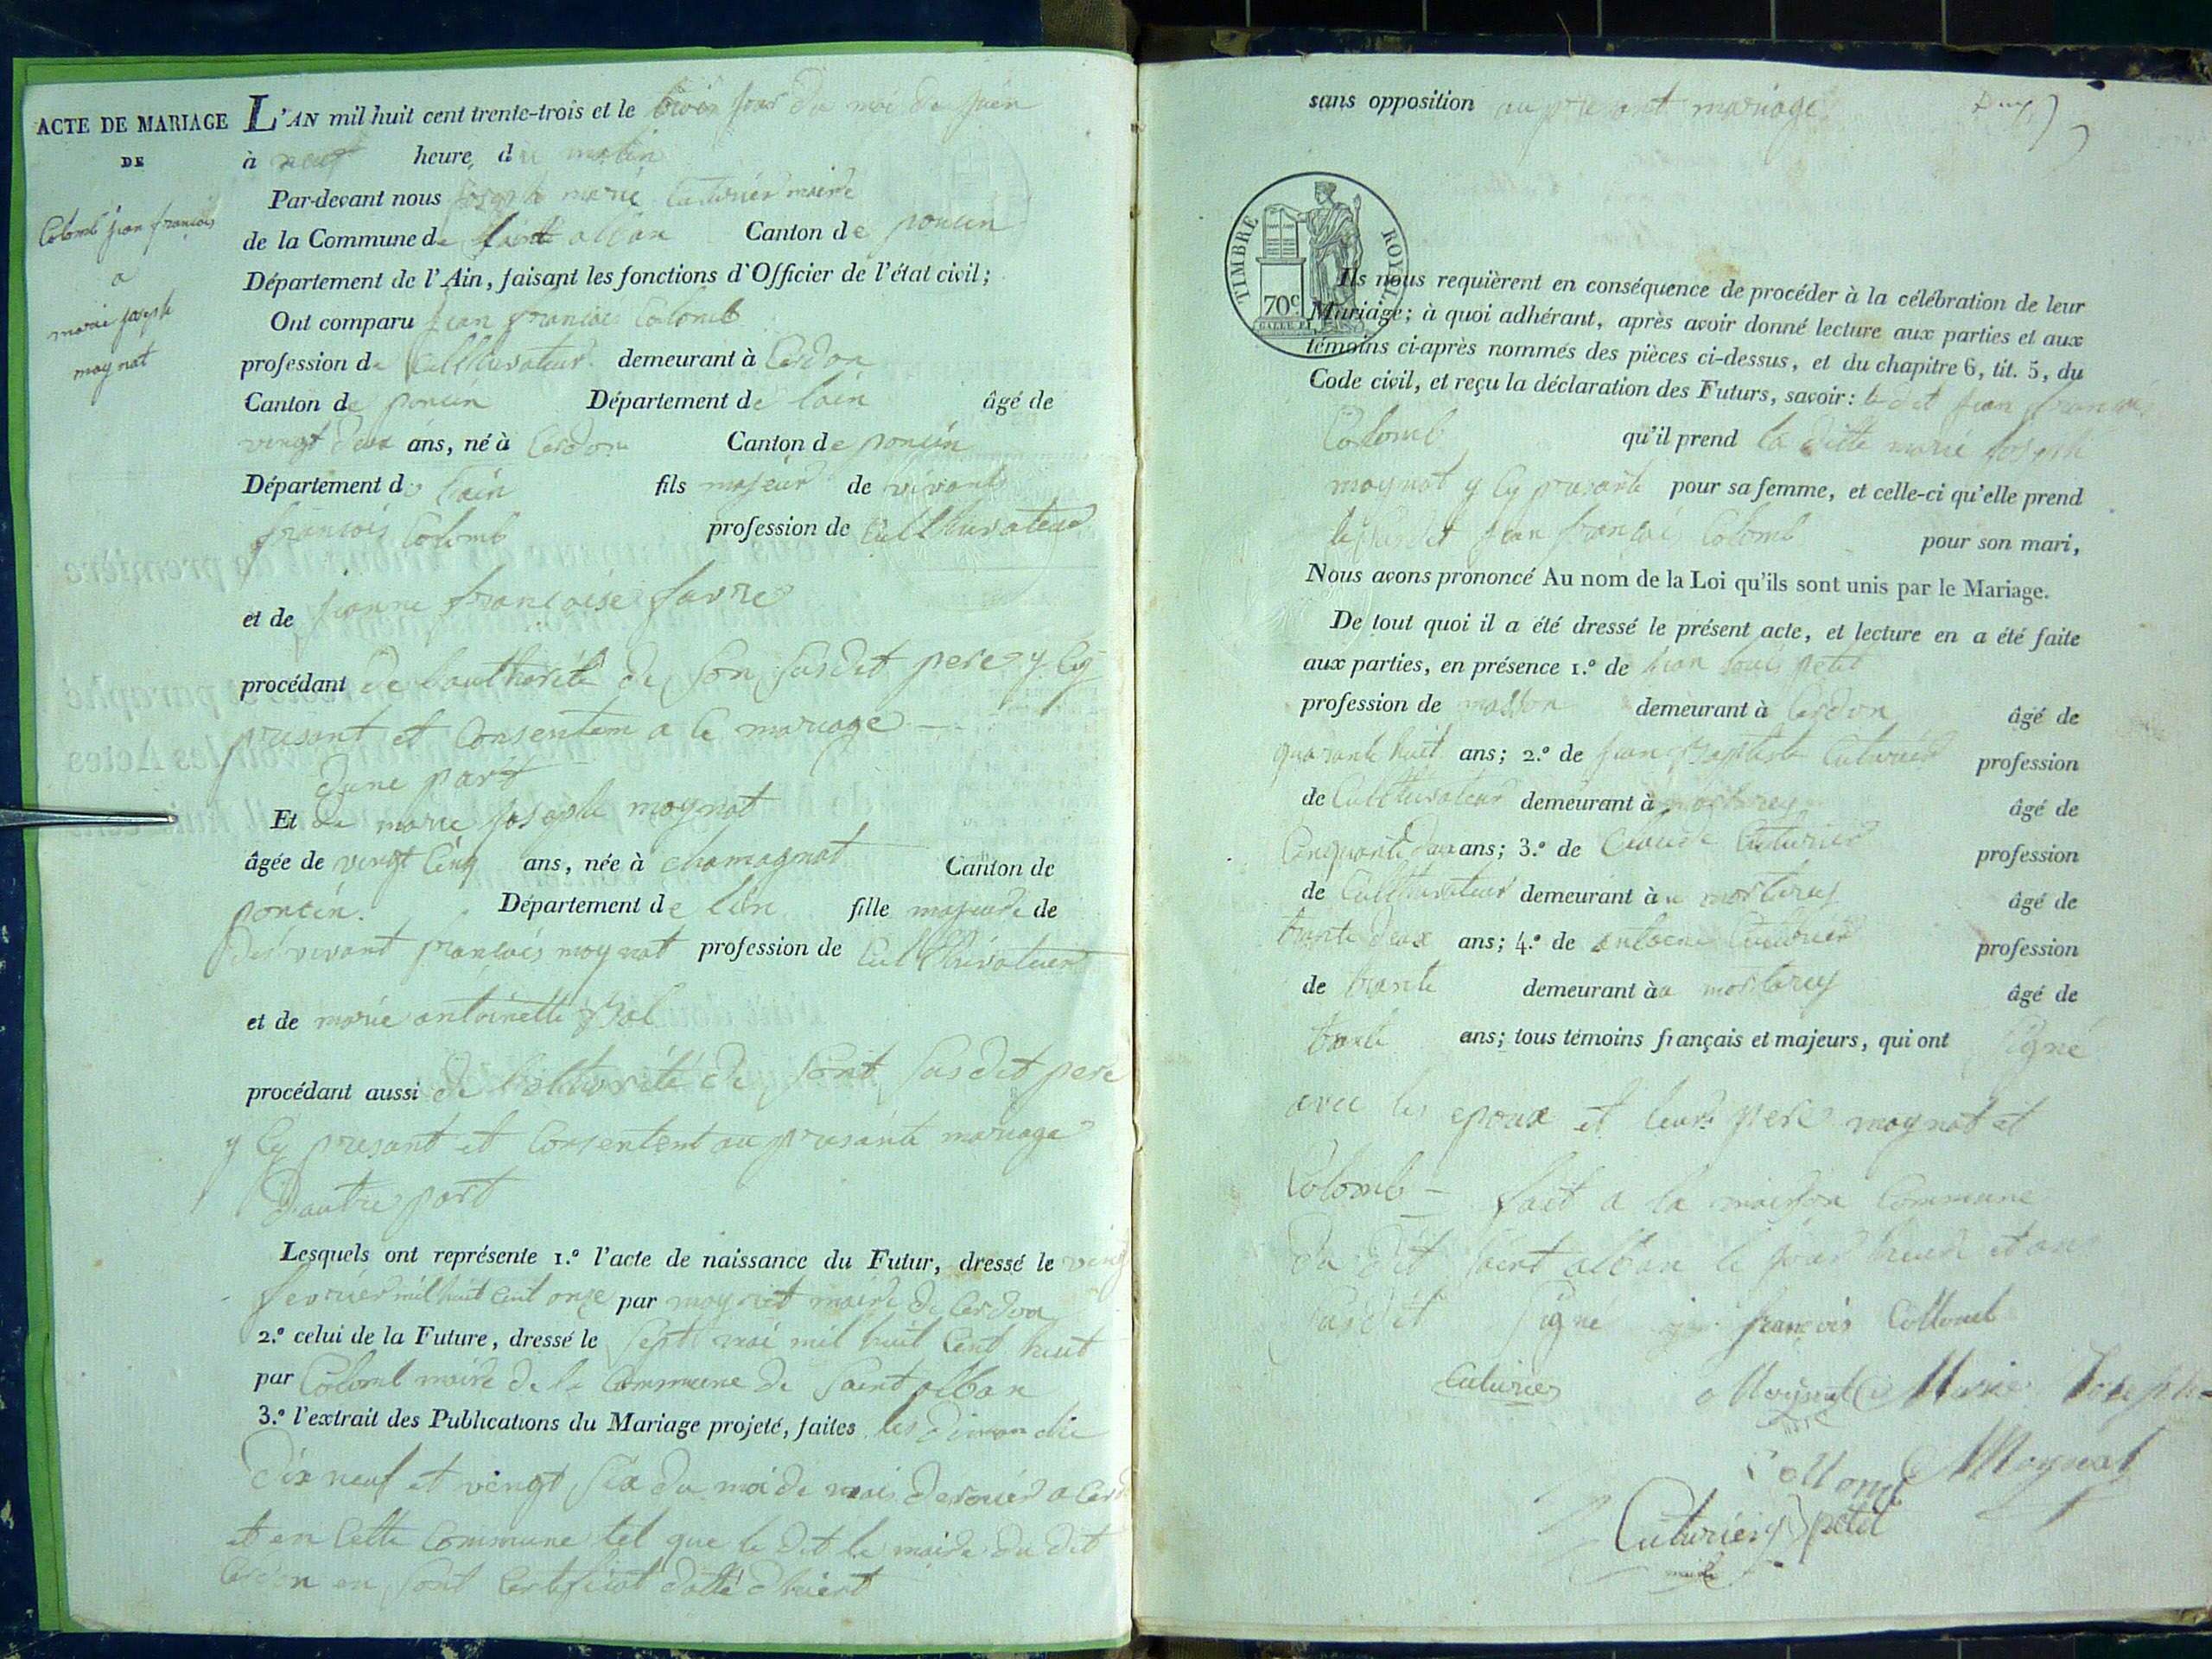 ACTE DE MARIAGE
DE
Colomb jean françois
a
marie joseph
moynat
L'AN mil huit cent trente-trois et le troi jour du moi de juin
à neuf heure, du matin
Par-devant nous joseph marie Cuturier maire
de la Commune de saint alban Canton de poncin
Département de l'Ain, faisant les fonctions d'Officier de l'état civil;
Ont comparu jean francois Colomb
profession de Cultthivateur demeurant à Cerdon
Canton de poncin Département de lain âgé de
vingt deux ans, né à Cerdon Canton de poncin
Département de lain fils majeur de vivants
francois Colomb profession de Cultthivateur
et de jeanne francoise favre
procédant de lautherité de son susdit pere y Cy
presant et Consentem a Ce mariage
dune part
Et de marie joseph moynat
âgée de vingt Cinq ans, née à chamagnat Canton de
poncin. Département de lain fille majeure de
des vivant francois moynat profession de Cultthivateur
et de marie antoinette Bal
procédant aussi de lotthorité de sont susdit pere
y Cy presant et Consentent au presante mariage
dautre part
Lesquels ont représente 1.º l'acte de naissance du Futur, dressé le vingt
fevrier mil huit cent onze par moynat maire de Cerdon
2.º celui de la Future, dressé le sept mai mil huit Cent huit
par Colomb maire de la Commune de Saint alban
3.º l'extrait des Publications du Mariage projeté, faites les dimanche
dix neuf et vingt six du moi de mai dernier a Cerd
et en Cette Commune tel que le dit le maire du dit
Cerdon en sont Certificat datté dhiert
sans opposition au presant mariage
TIMBRE ROYAL
70c
Ils nous requièrent en conséquence de procéder à la célébration de leur
Mariage; à quoi adhérant, après avoir donné lecture aux parties et aux
témoins ci-après nommés des pièces ci-dessus, et du chapitre 6, tit. 5, du
Code civil, et reçu la déclaration des Futurs, savoir: le dit jean francois
Colomb qu'il prend la ditte marie joseph
moynat y Cy presante pour sa femme, et celle-ci qu'elle prend
le susdit jean françois Colomb pour son mari,
Nous avons prononcé Au nom de la Loi qu'ils sont unis par le Mariage.
De tout quoi il a été dressé le présent acte, et lecture en a été faite
aux parties, en présence 1.º de jean louis petit
profession de masson demeurant à Cerdon âgé de
quarante huit ans; 2.º de jean Baptiste Cuturier profession
de Cultthivateur demeurant à mortarey âgé de
Cinquante deux ans; 3.º de Claude Cuturier profession
de Cultthivateur demeurant à a mortarey âgé de
trante deux ans; 4.º de antoine Cuturier profession
de trante demeurant à a mortarey âgé de
trante ans; tous témoins français et majeurs, qui ont signé
avec les epoux et leurs pere moynat et
Colomb – fait a la maison Commune
du dit saint alban le jour heure et an
susdit signé françois Collomb
Cuturier Moynat Marie Josephe
Collomb Moynat
Cuturier petit
maire